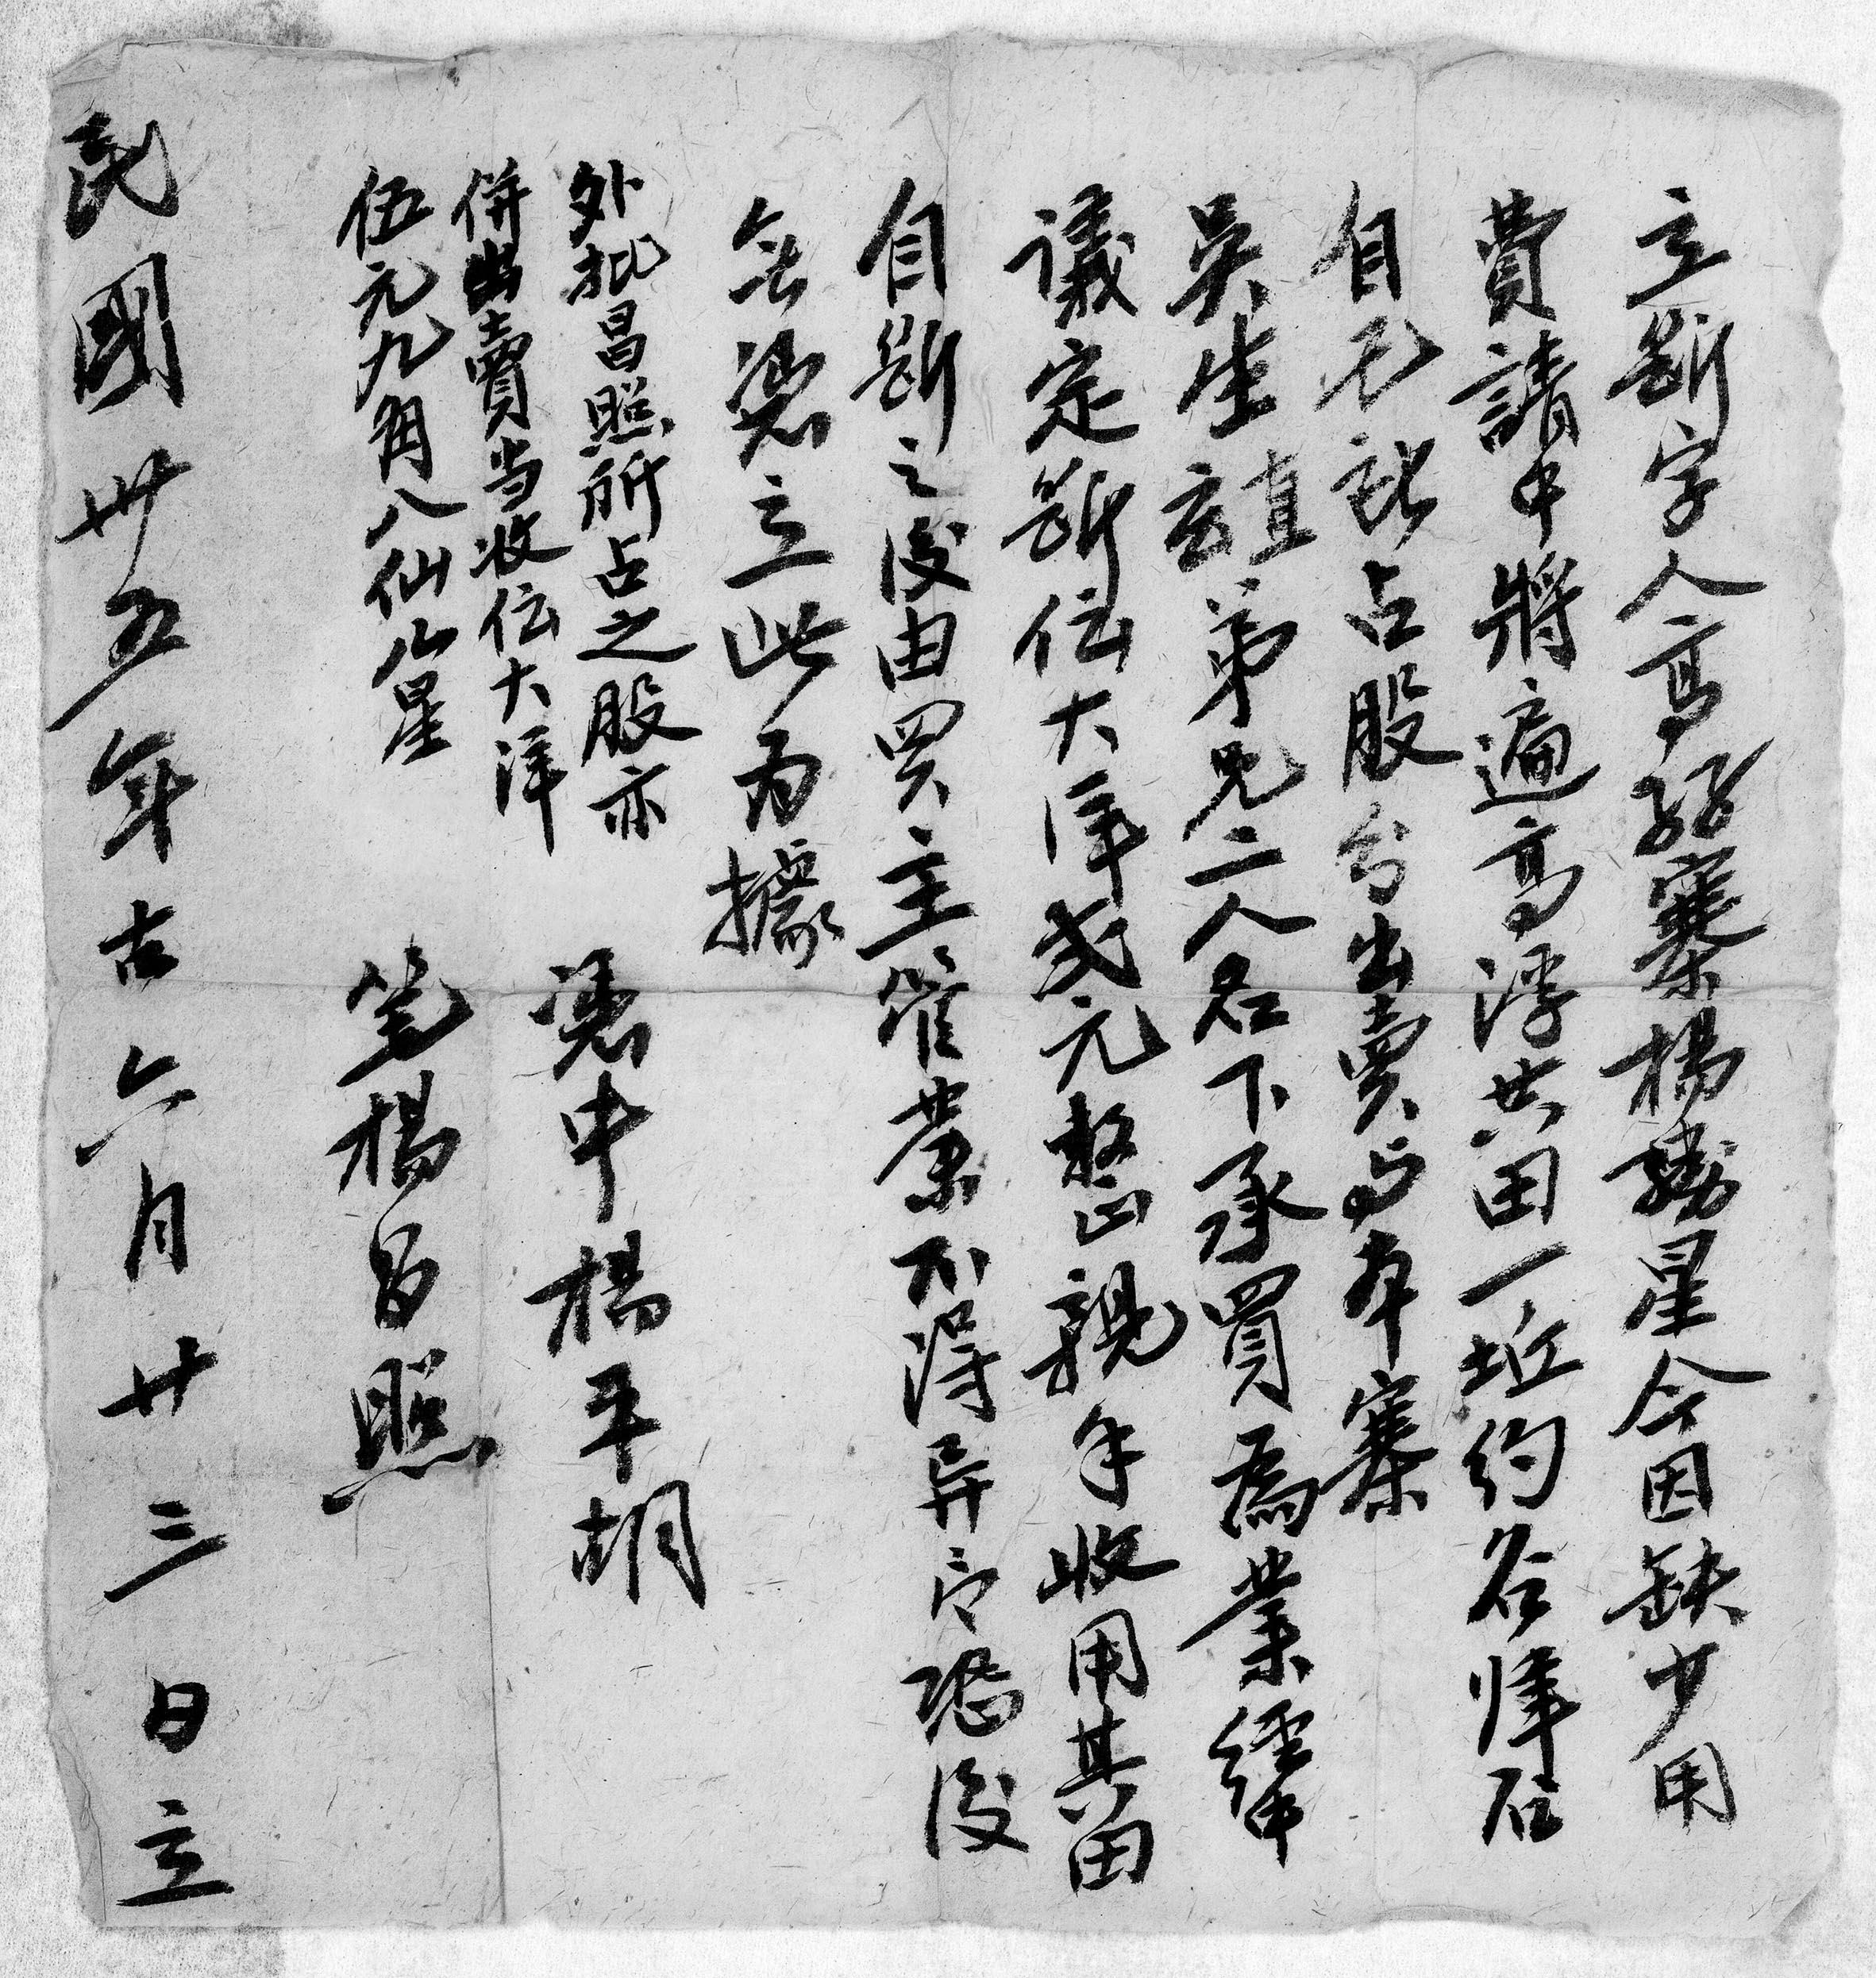 立斷字人高韶寨楊勝星今因缺少用
費請中將遍高浮共田一坵約谷 石
自己就占股分出賣与本寨
吳生 直玄 弟兄二人名下承買為業經中
議定斷伝大洋弍元整正親手收用其田
自斷之後由買主管業不得异言恐後
無憑立此為據
外批昌照所占之股亦
併出賣当收伝大洋
伍元九角八仙 勝星
憑中楊平胡
笔楊昌照
民國卅五年古六月廿三日立